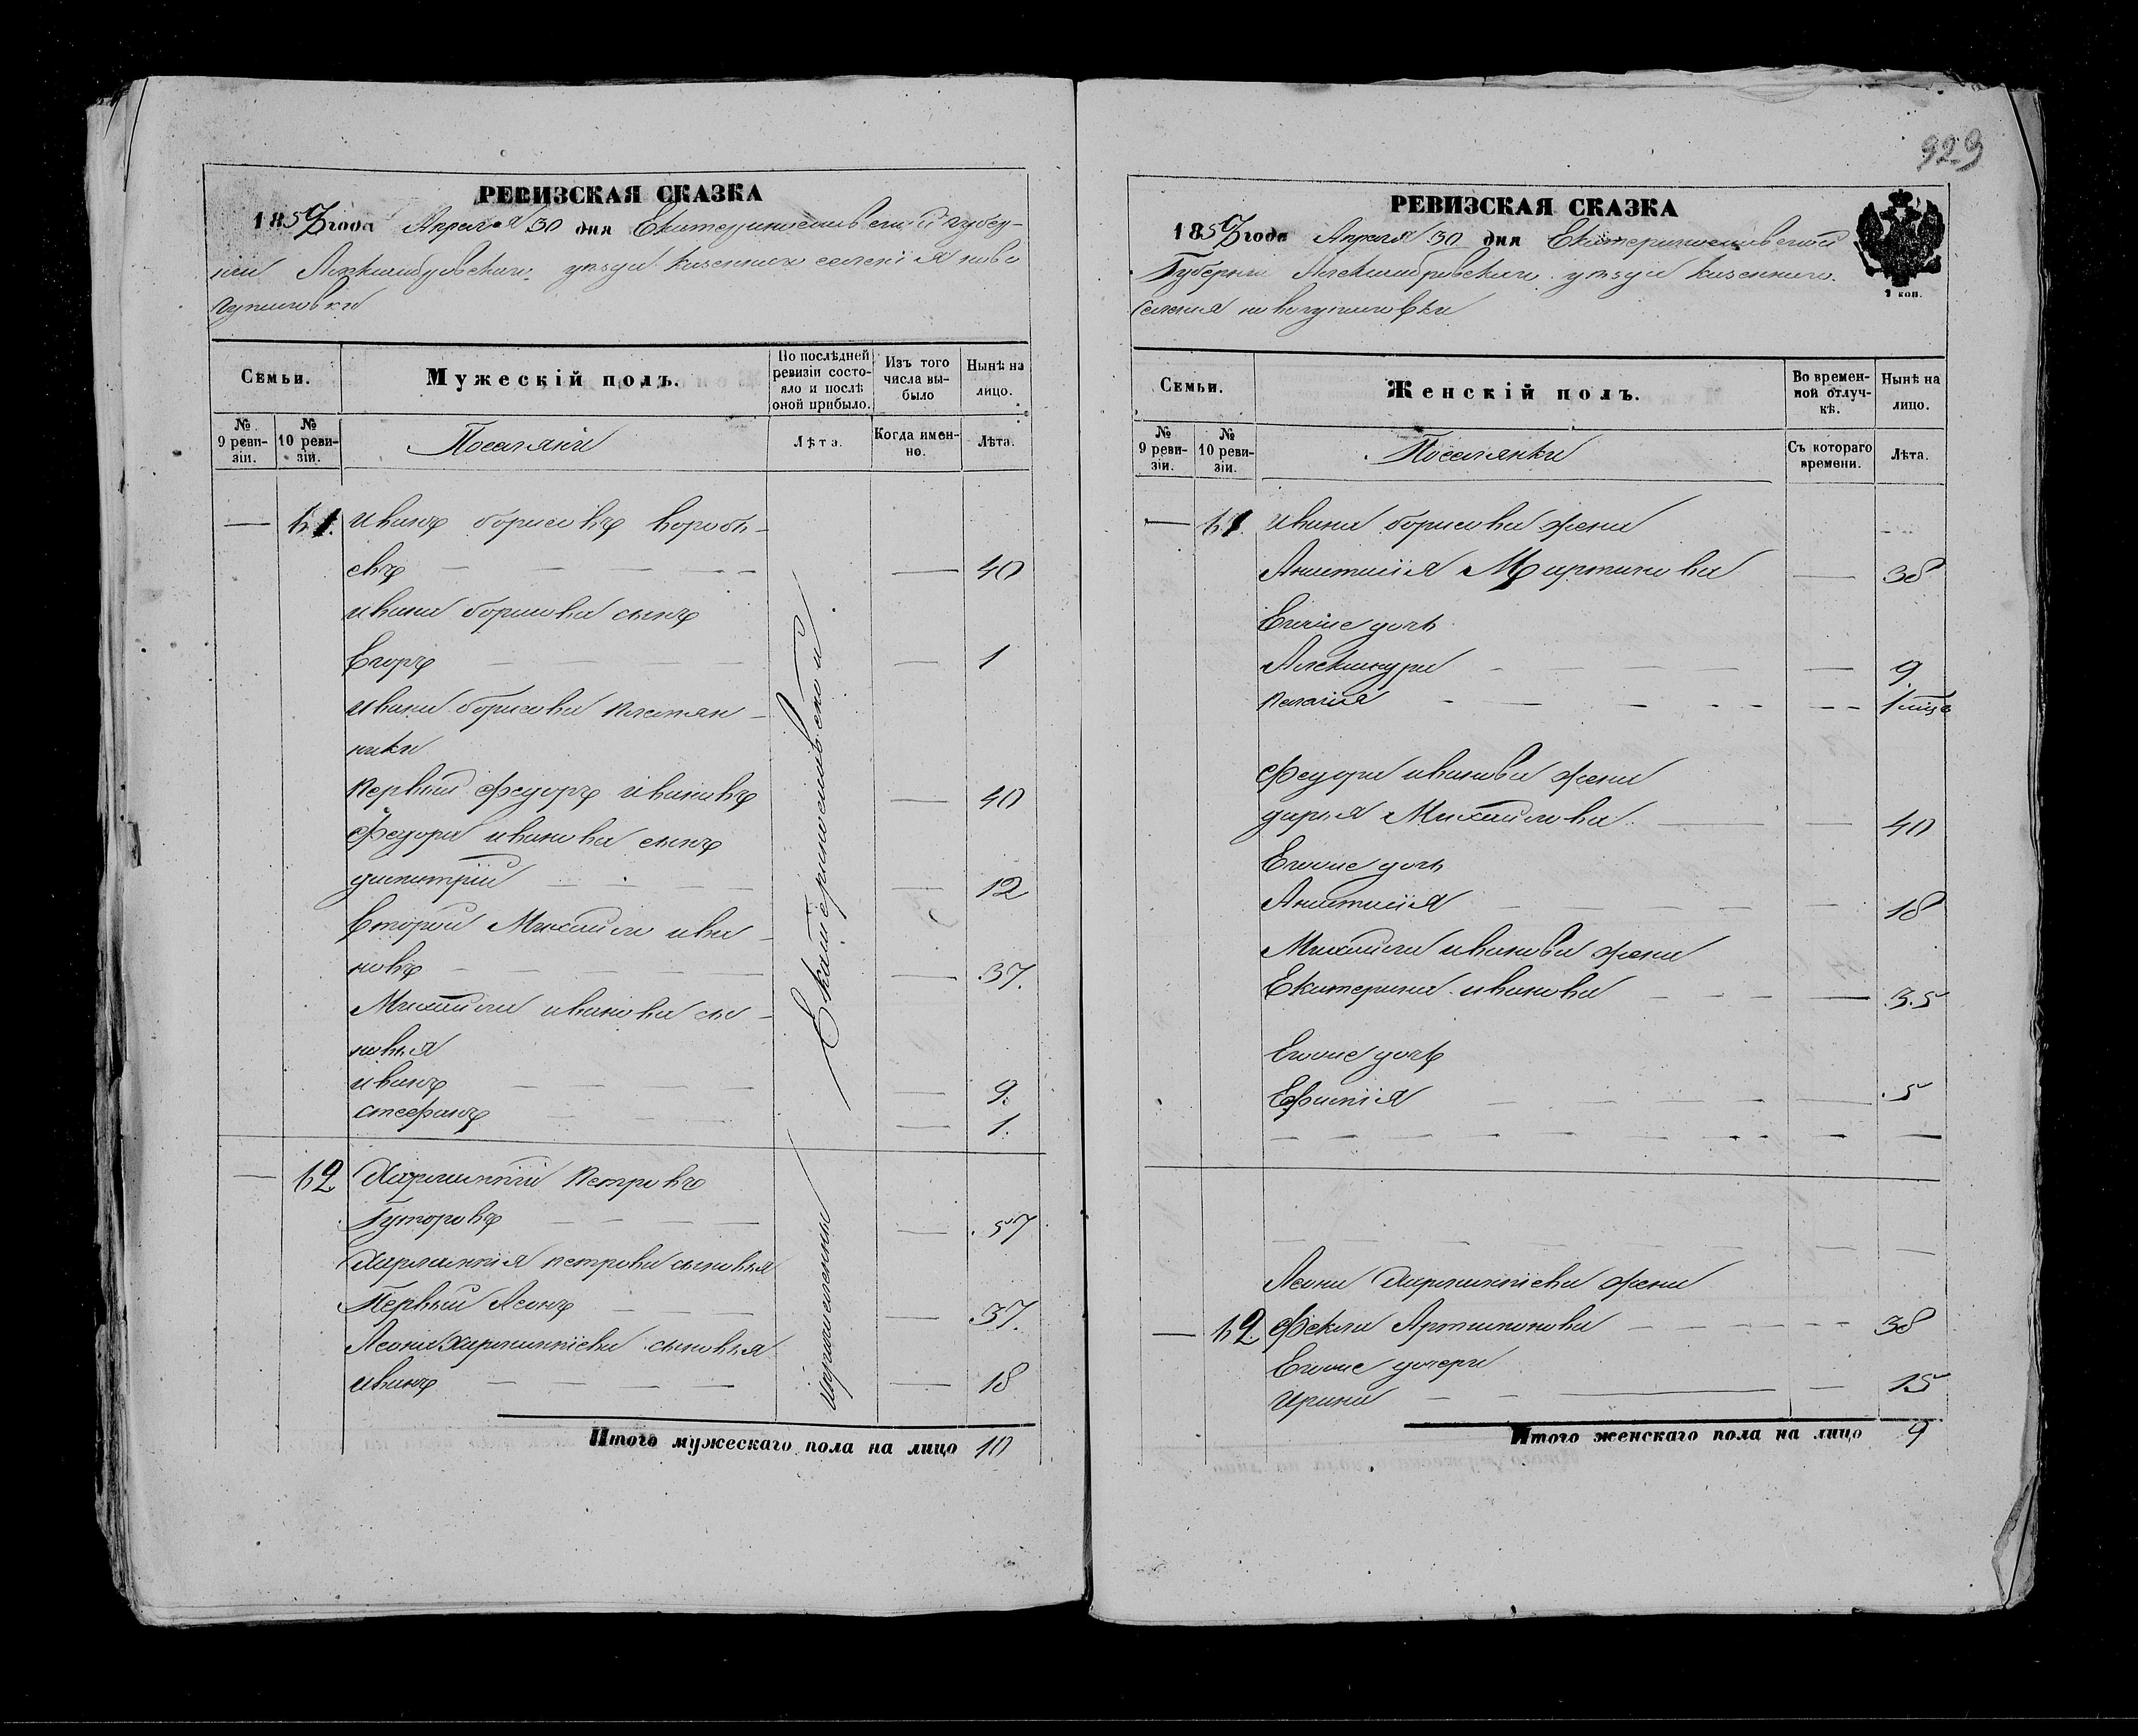 929
РЕВИЗСКАЯ СКАЗКА
1858 года Апреля 30 дня Екатеринославской губер-
нии Александровскаго уезда казеннаго селенія ново
гупаловки
Семьи.
Мужескій полъ.
По послѣдней ревизіи состо-яло и послѣ оной прибыло.
Изъ того числа вы-было
Нынѣ на лицо.
№ 9 реви-зіи.
№ 10 реви-зіи.
Поселяни
Лѣта.
Когда имен-но.
Лѣта.
— 61. иванъ борисовъ вороб-
евъ — 40
ивана борисова сынъ
Егоръ — 1
ивана борисова племян-
ники
первый федоръ ивановъ — 40
Федора иванова сынъ
димитрій — 12
второй Михайло ива-
новъ — 37.
Михайла иванова сы-
новья
иванъ — 9.
стефанъ — 1.
Екатеринославской
— 62 Харлампій петровъ
Гуторовъ — 57
Харлампія петрова сыновья
Первый Леонъ — 37.
Леона харлампіева сыновья
иванъ — 18
Итого мужескаго пола на лицо 10
РЕВИЗСКАЯ СКАЗКА
1858 года Апреля 30 дня Екатеринославской
Губерніи Александровскаго уезда казеннаго
селенія новогупаловки
1 коп.
Семьи.
Женскій полъ.
Во времен-ной отлуч-кѣ.
Нынѣ на лицо.
№ 9 реви-зіи.
№ 10 реви-зіи.
Поселянки
Съ котораго времени.
Лѣта.
— 61. ивана борисова жена
Анастасія Мартинова — 38
Егоже дочь
Александра — 9
пелагія — 1
федора иванова жена
дарья Михайлова — 40
Егоже дочь
Анастасія — 18
Михайла иванова жена
Екатерина иванова — 35
Егоже дочь
Ефимія — 5
Леона Харлампіева жена
— 62. Фекла Артамонова — 38
Егоже дочери
Ирина — 15
Итого женскаго пола на лицо 9